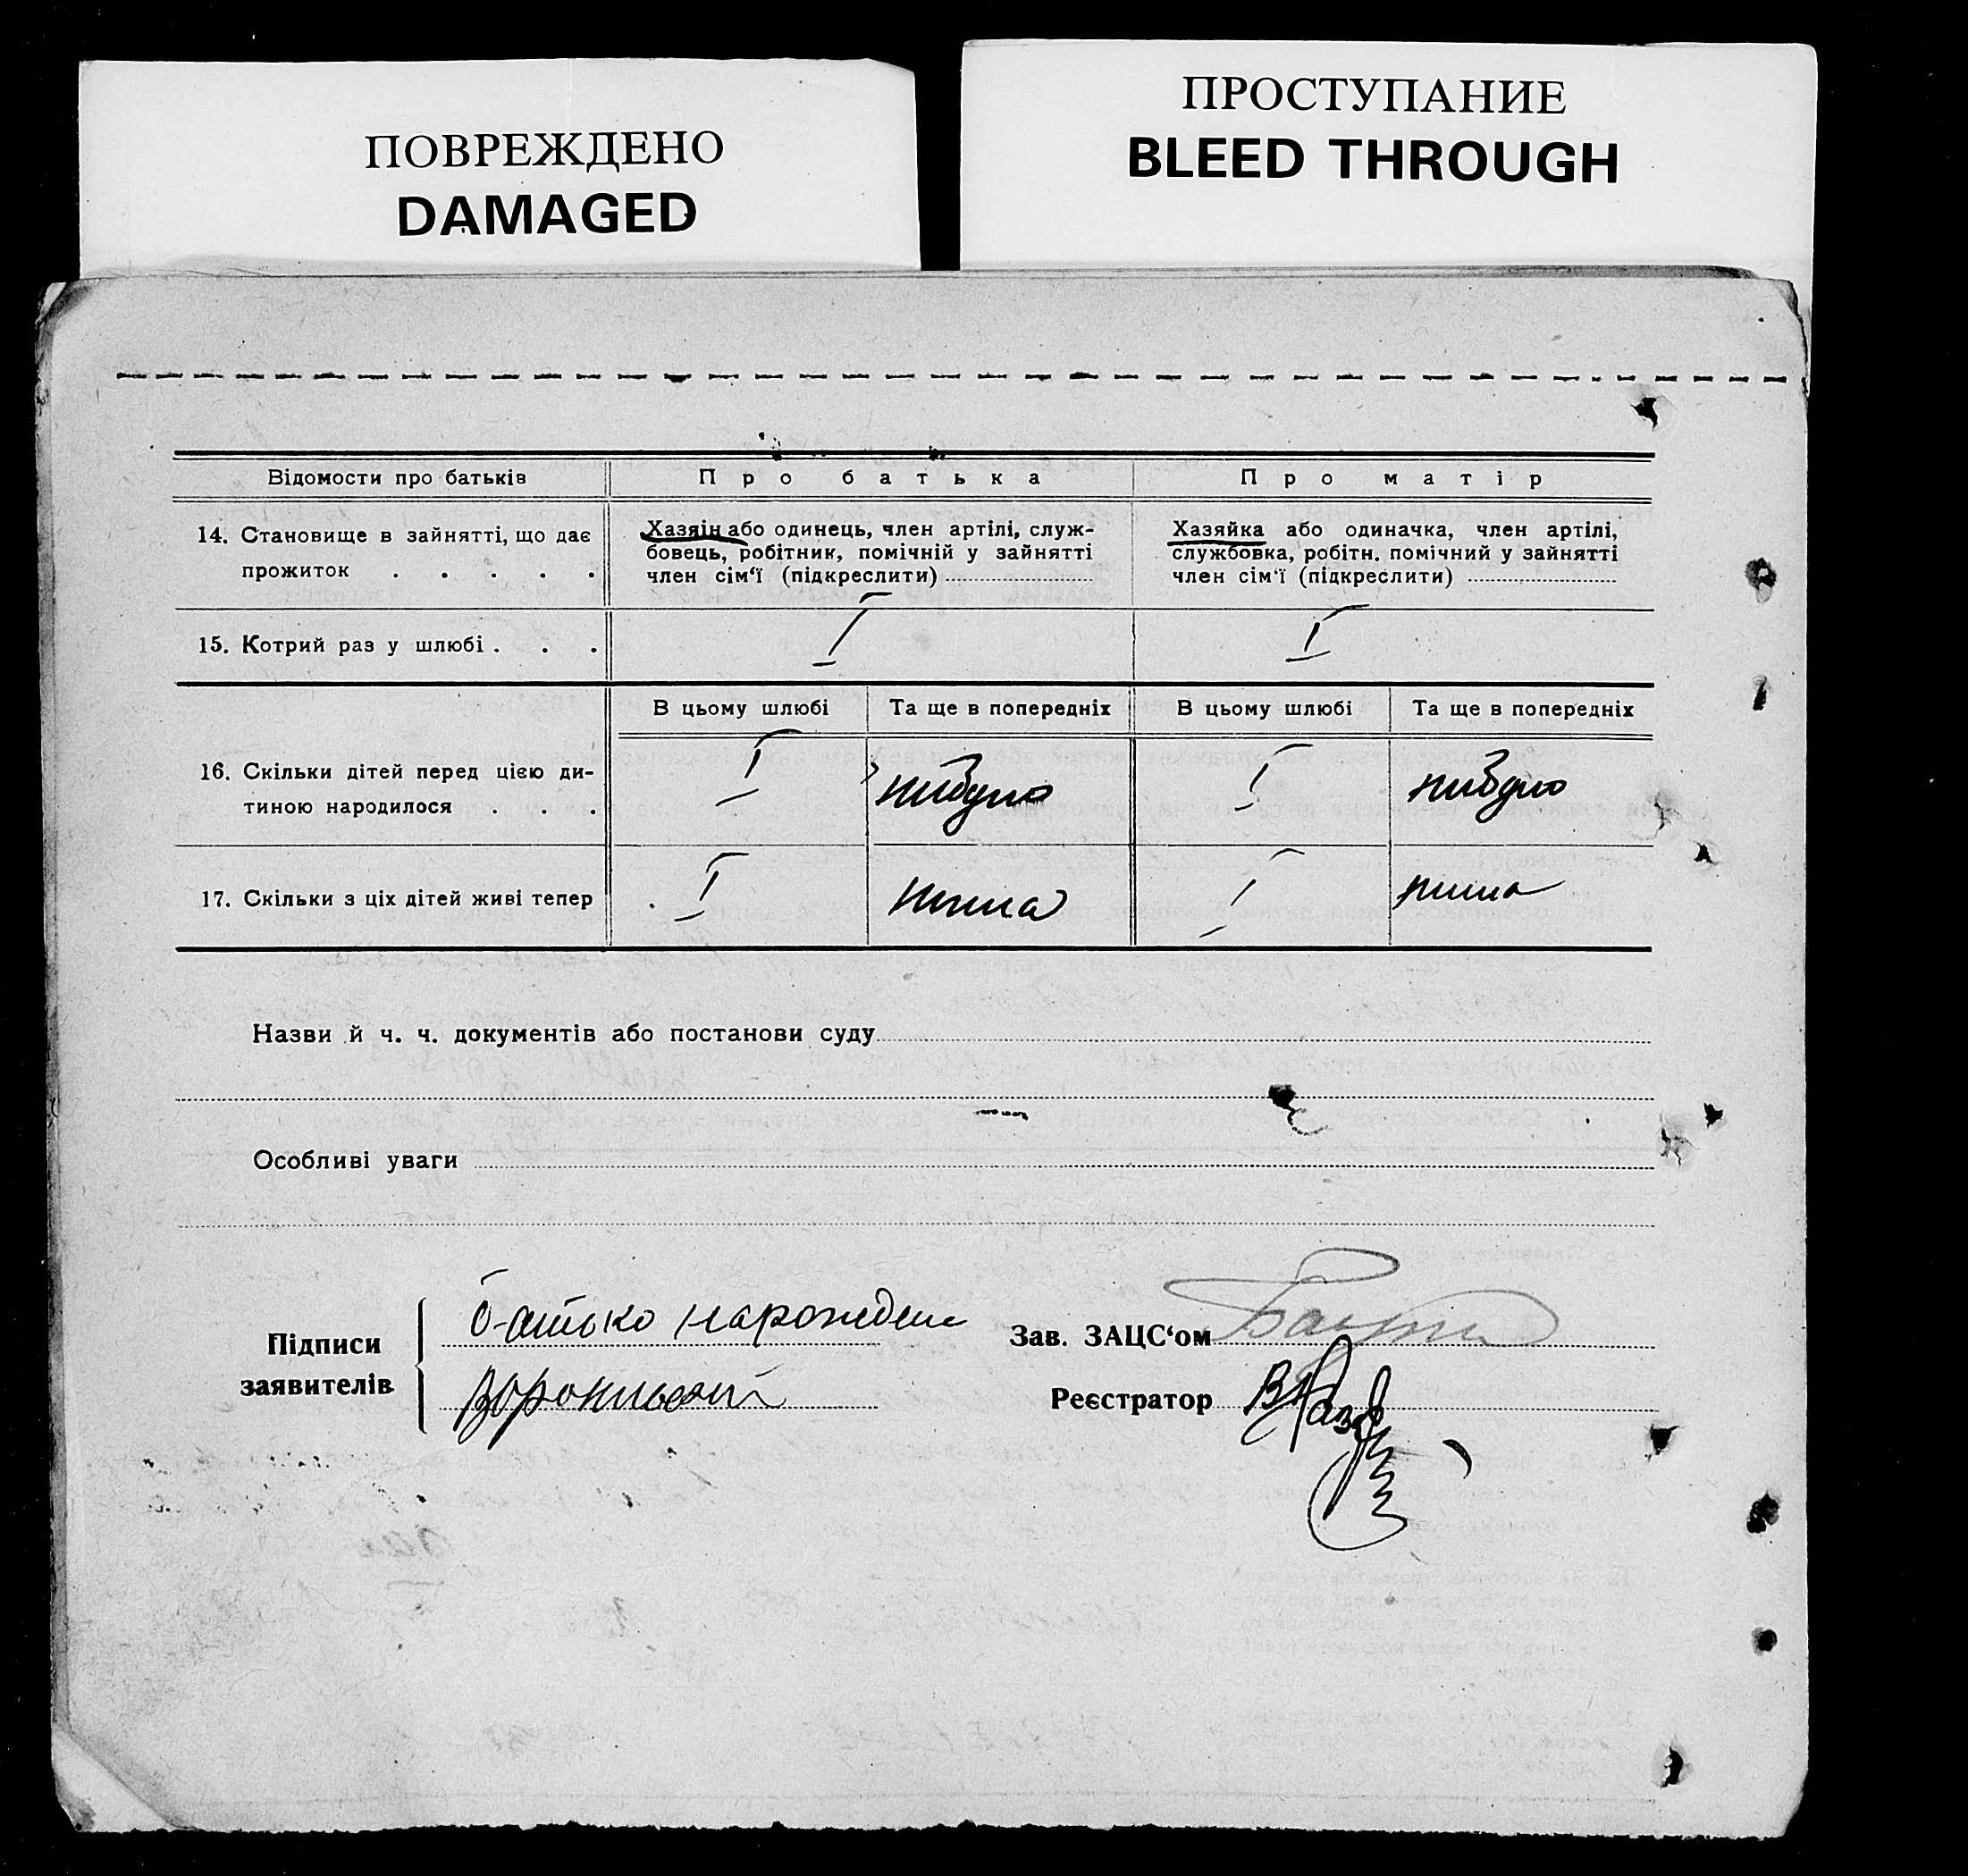 ПОВРЕЖДЕНО
DAMAGED
ПРОСТУПАНИЕ
BLEED THROUGH
Відомости про батьків
Про батька
Про матір
14. Становище в зайнятті, що дає
прожиток . . . . .
Хазяїн або одинець, член артілі, служ-
бовець, робітник, помічній у зайнятті
член сім‘ї (підкреслити)
Хазяйка або одиначка, член артілі,
службовка, робітн. помічний у зайнятті
член сім‘ї (підкреслити)
15. Котрий раз у шлюбі . . .
I
I
В цьому шлюбі
Та ще в попередніх
В цьому шлюбі
Та ще в попередніх
16. Скільки дітей перед цією ди-
тиною народилося . . .
I
I
17. Скільки з ціх дітей живі тепер
I
нима
I
нима
Назви й ч. ч. документів або постанови суду
Особливі уваги
Підписи
заявителів
батько
Зав. ЗАЦС‘ом
Реєстратор